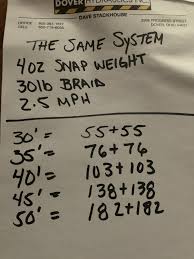 DOVER HYDRAULICS INC.
DAVE STACKHOUSE
OFFICE
CELL
DOVER, OHIO
THE SAME SYSTEM
4oz SNAP WEIGHT
30lb BRAID
2.5 MPH
30' = 55+55
35' = 76+76
40' = 103+103
45' = 138+138
50' = 182+182